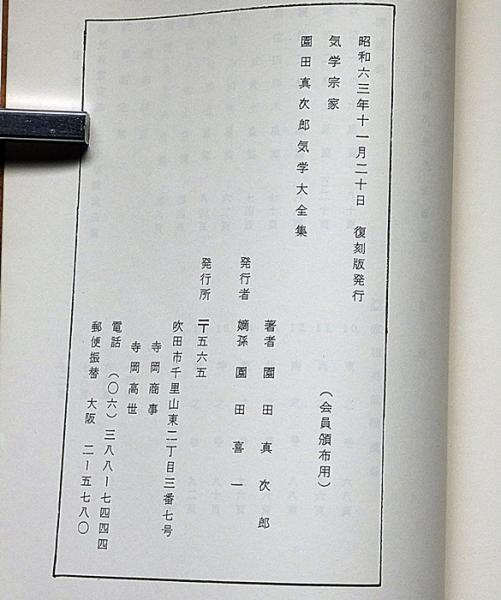 昭和六三年十一月二十日　復刻版発行
気学宗家
園田真次郎気学大全集
（会員頒布用）
著者　園田真次郎
発行者　嫡孫　園田喜一
発行所　〒五六五
吹田市千里山東二丁目三番七号
寺岡商事
寺岡高世
電話　（〇六）三八八ー七四四四
郵便振替　大阪　二ー五七八〇